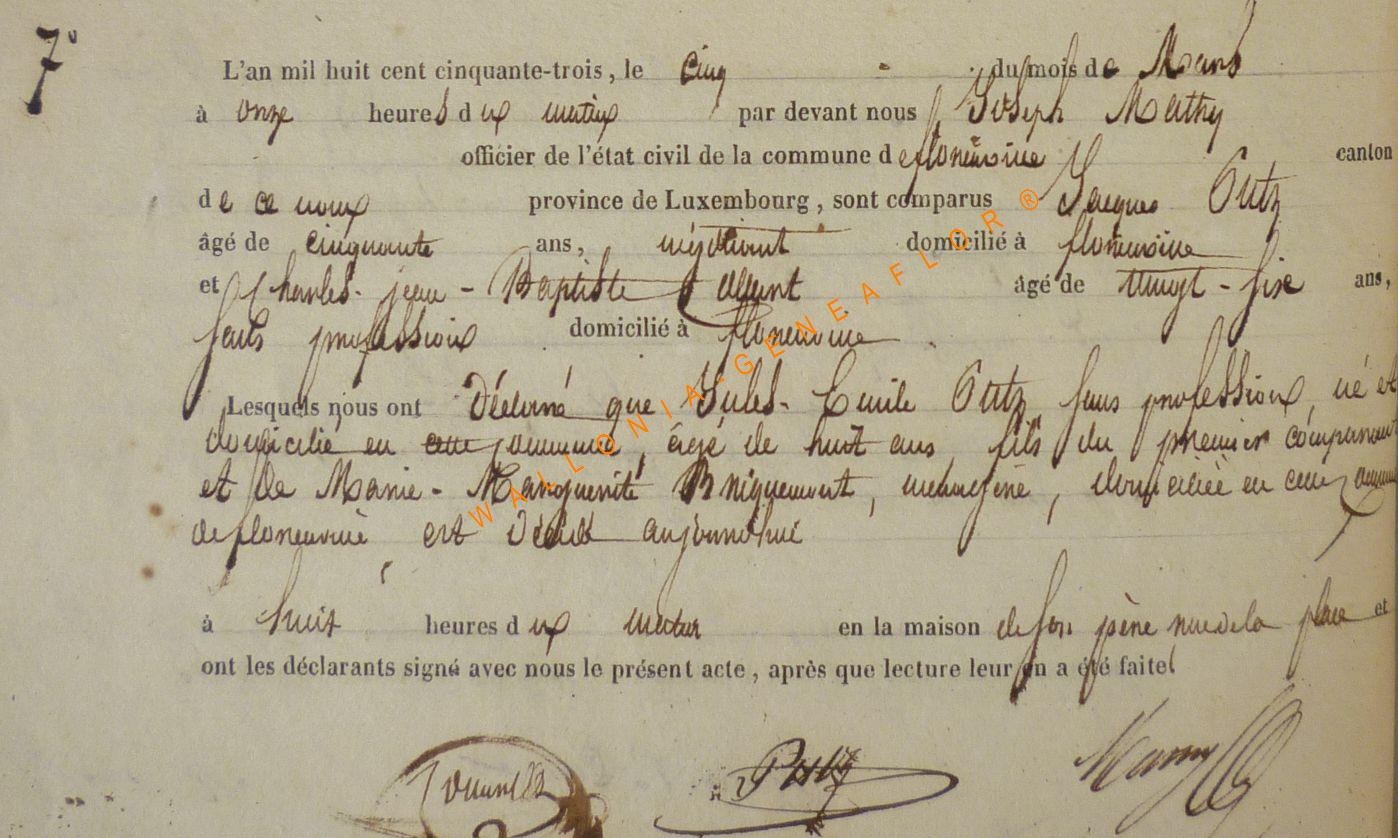 7°
L'an mil huit cent cinquante-trois, le cinq - du mois de Mars
à onze heures du matin par devant nous Joseph Mathy
officier de l'état civil de la commune de florenville canton
de ce nom province de Luxembourg, sont comparus Jacques Putz
âgé de cinquante ans, négotiant domicilié à florenville
et Charles-jean-Baptiste âgé de vingt-six ans,
sans profession domicilié à florenville.
Lesquels nous ont Déclaré que Jules-Emile Putz, sans profession, né et
domicilié en cette commune, âgé de huit ans, fils du premier comparant
et de Marie-Marguerite Briquemont, ménagère, domiciliée en cette commune
de florenville est Décédé aujourd'hui
à huit heures du matin en la maison de son père rue de la place et
ont les déclarants signé avec nous le présent acte, après que lecture leur en a été faite.
Putz
WALLONIA-GENEAFLOR®